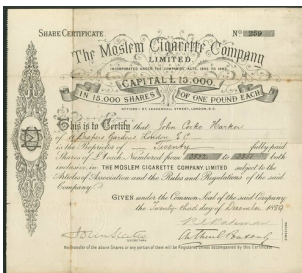 SHARE CERTIFICATE Nº 259
The Moslem Cigarette Company
LIMITED.
INCORPORATED UNDER THE COMPANIES ACTS, 1862 TO 1883.
CAPITAL £15,000
IN 15,000 SHARES OF ONE POUND EACH
OFFICES: 57, LEADENHALL STREET, LONDON, E.C.
This is to Certify that John Cooke Harker
of Drapers Gardens London E.C.
is the Proprietor of Twenty fully paid
Shares of £1 each, Numbered from to both
inclusive in THE MOSLEM CIGARETTE COMPANY LIMITED subject to the
Articles of Association and the Rules and Regulations of the said
Company.
GIVEN under the Common Seal of the said Company
the Twenty third day of December 1889
SECRETARY
DIRECTORS
No Transfer of the above Shares or any portion of them will be Registered unless accompanied by this Certificate.